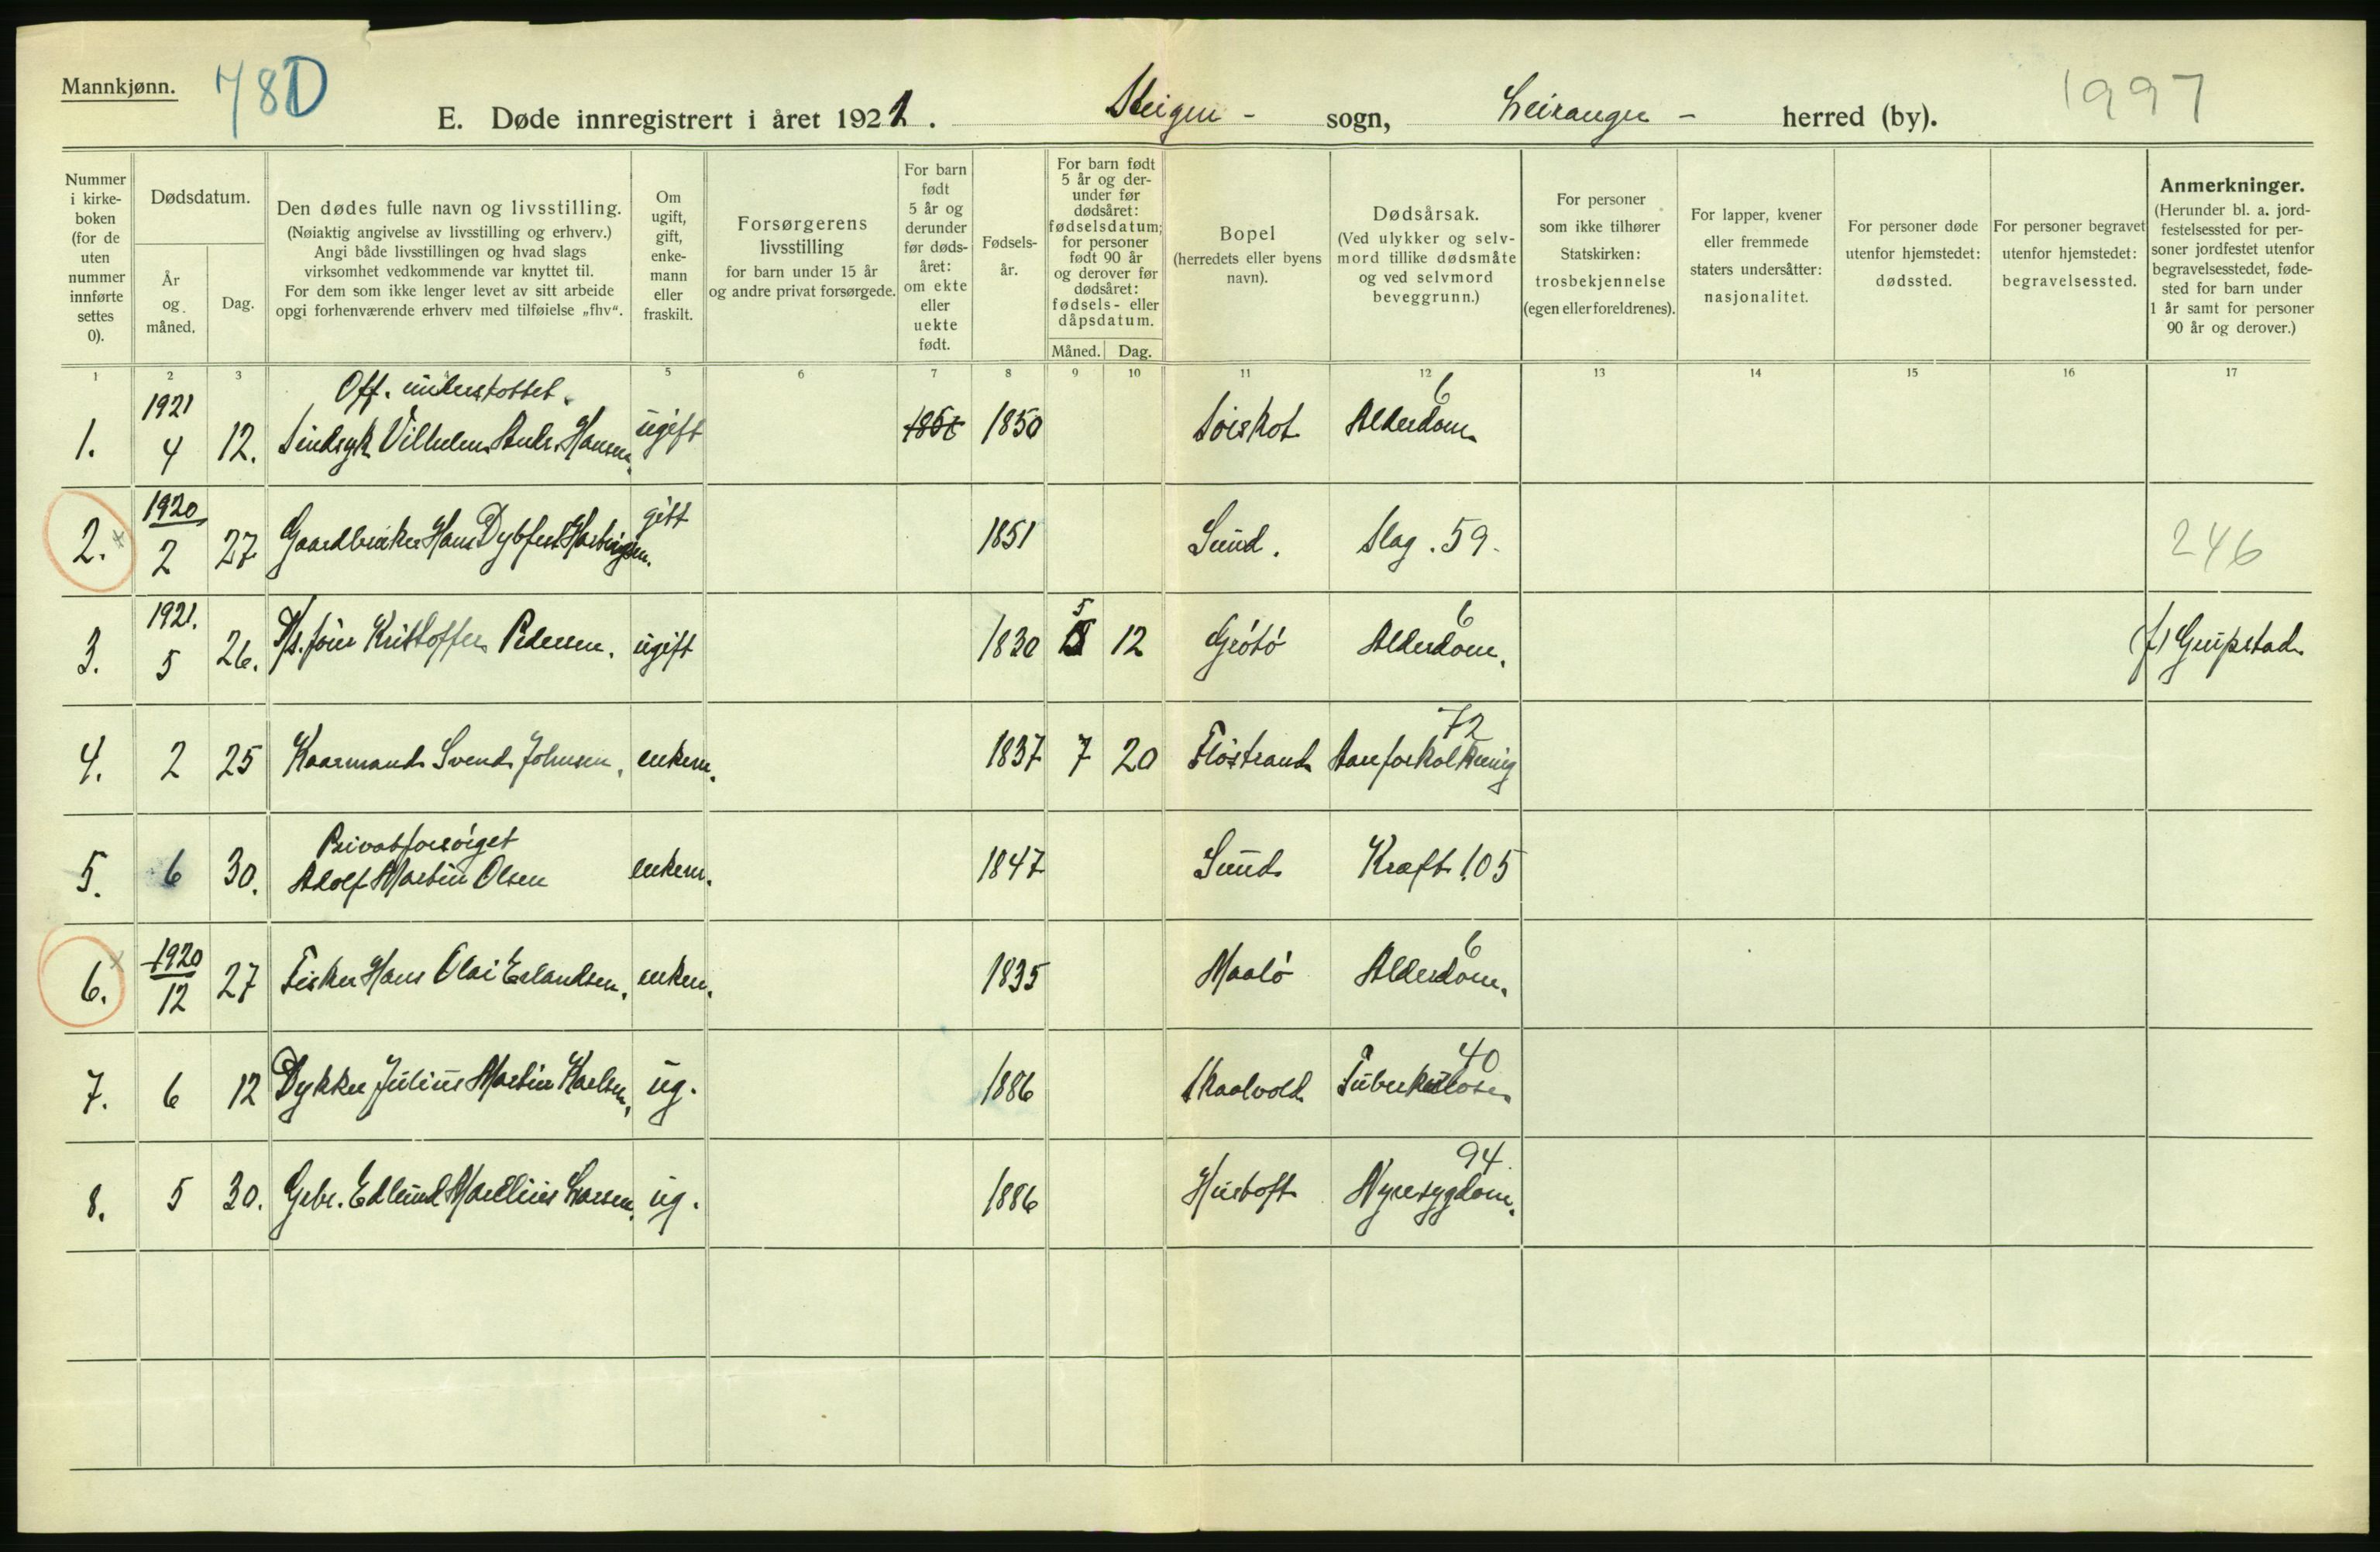 Mannkjønn.
78D
E. Døde innregistrert i året 1921. Steigen - sogn, Leiranger - herred (by).
1997
Nummer i kirkeboken (for de uten nummer innførte settes 0).
Dødsdatum.
År og måned.
Dag.
Den dødes fulle navn og livsstilling.
(Nøiaktig angivelse av livsstilling og erhverv.)
Angi både livsstillingen og hvad slags
virksomhet vedkommende var knyttet til.
For dem som ikke lenger levet av sitt arbeide
opgi forhenværende erhverv med tilføielse „fhv“.
Om ugift, gift, enkemann eller fraskilt.
Forsørgerens livsstilling
for barn under 15 år
og andre privat forsørgede.
For barn født 5 år og derunder før dødsåret: om ekte eller uekte født.
Fødselsår.
For barn født 5 år og derunder før dødsåret: fødselsdatum; for personer født 90 år og derover før dødsåret: fødsels- eller dåpsdatum.
Måned. Dag.
Bopel
(herredets eller byens navn).
Dødsårsak.
(Ved ulykker og selvmord tillike dødsmåte og ved selvmord beveggrunn.)
For personer som ikke tilhører Statskirken: trosbekjennelse (egen eller foreldrenes).
For lapper, kvener eller fremmede staters undersåtter: nasjonalitet.
For personer døde utenfor hjemstedet: dødssted.
For personer begravet utenfor hjemstedet: begravelsessted.
Anmerkninger.
(Herunder bl. a. jordfestelsessted for personer jordfestet utenfor begravelsesstedet, fødested for barn under 1 år samt for personer 90 år og derover.)
1 2 3 5 6 7 8 9 10 11 12 13 14 15 16 17
Off. understøttet.
1. 1921 4 12. Sindsyk Vilhelm Andr. Hansen. ugift 1850 Alderdom. 6
2. 1920 2 27 Gaardbruker Hans Dybfest Hartvigsen. gift 1851 Sund. Slag. 59. 246
3. 1921. 5 26. Kristoffer Pedersen. ugift 1830 5 12 Grøtø Alderdom. 6 (f) Grupstad
4. 2 25 Kaarmand Svend Johnsen. enkem. 1837 7 20 Fløstrand Aareforkalkning 72
Privatforsørget
5. 6 30. Adolf Martin Olsen enkem. 1847 Sund Kræft 105
6. 1920 12 27 Fisker Hans Olai Erlandsen. enkem. 1835 Maalø Alderdom. 6
7. 6 12 Dykker Julius Martin Karlsen, ug. 1886 Skaalvold Tuberkulose 40
8. 5 30. Gbr. Edlund Marelius Larsen. ug. 1886 Hustoft Nyresygdom. 94.